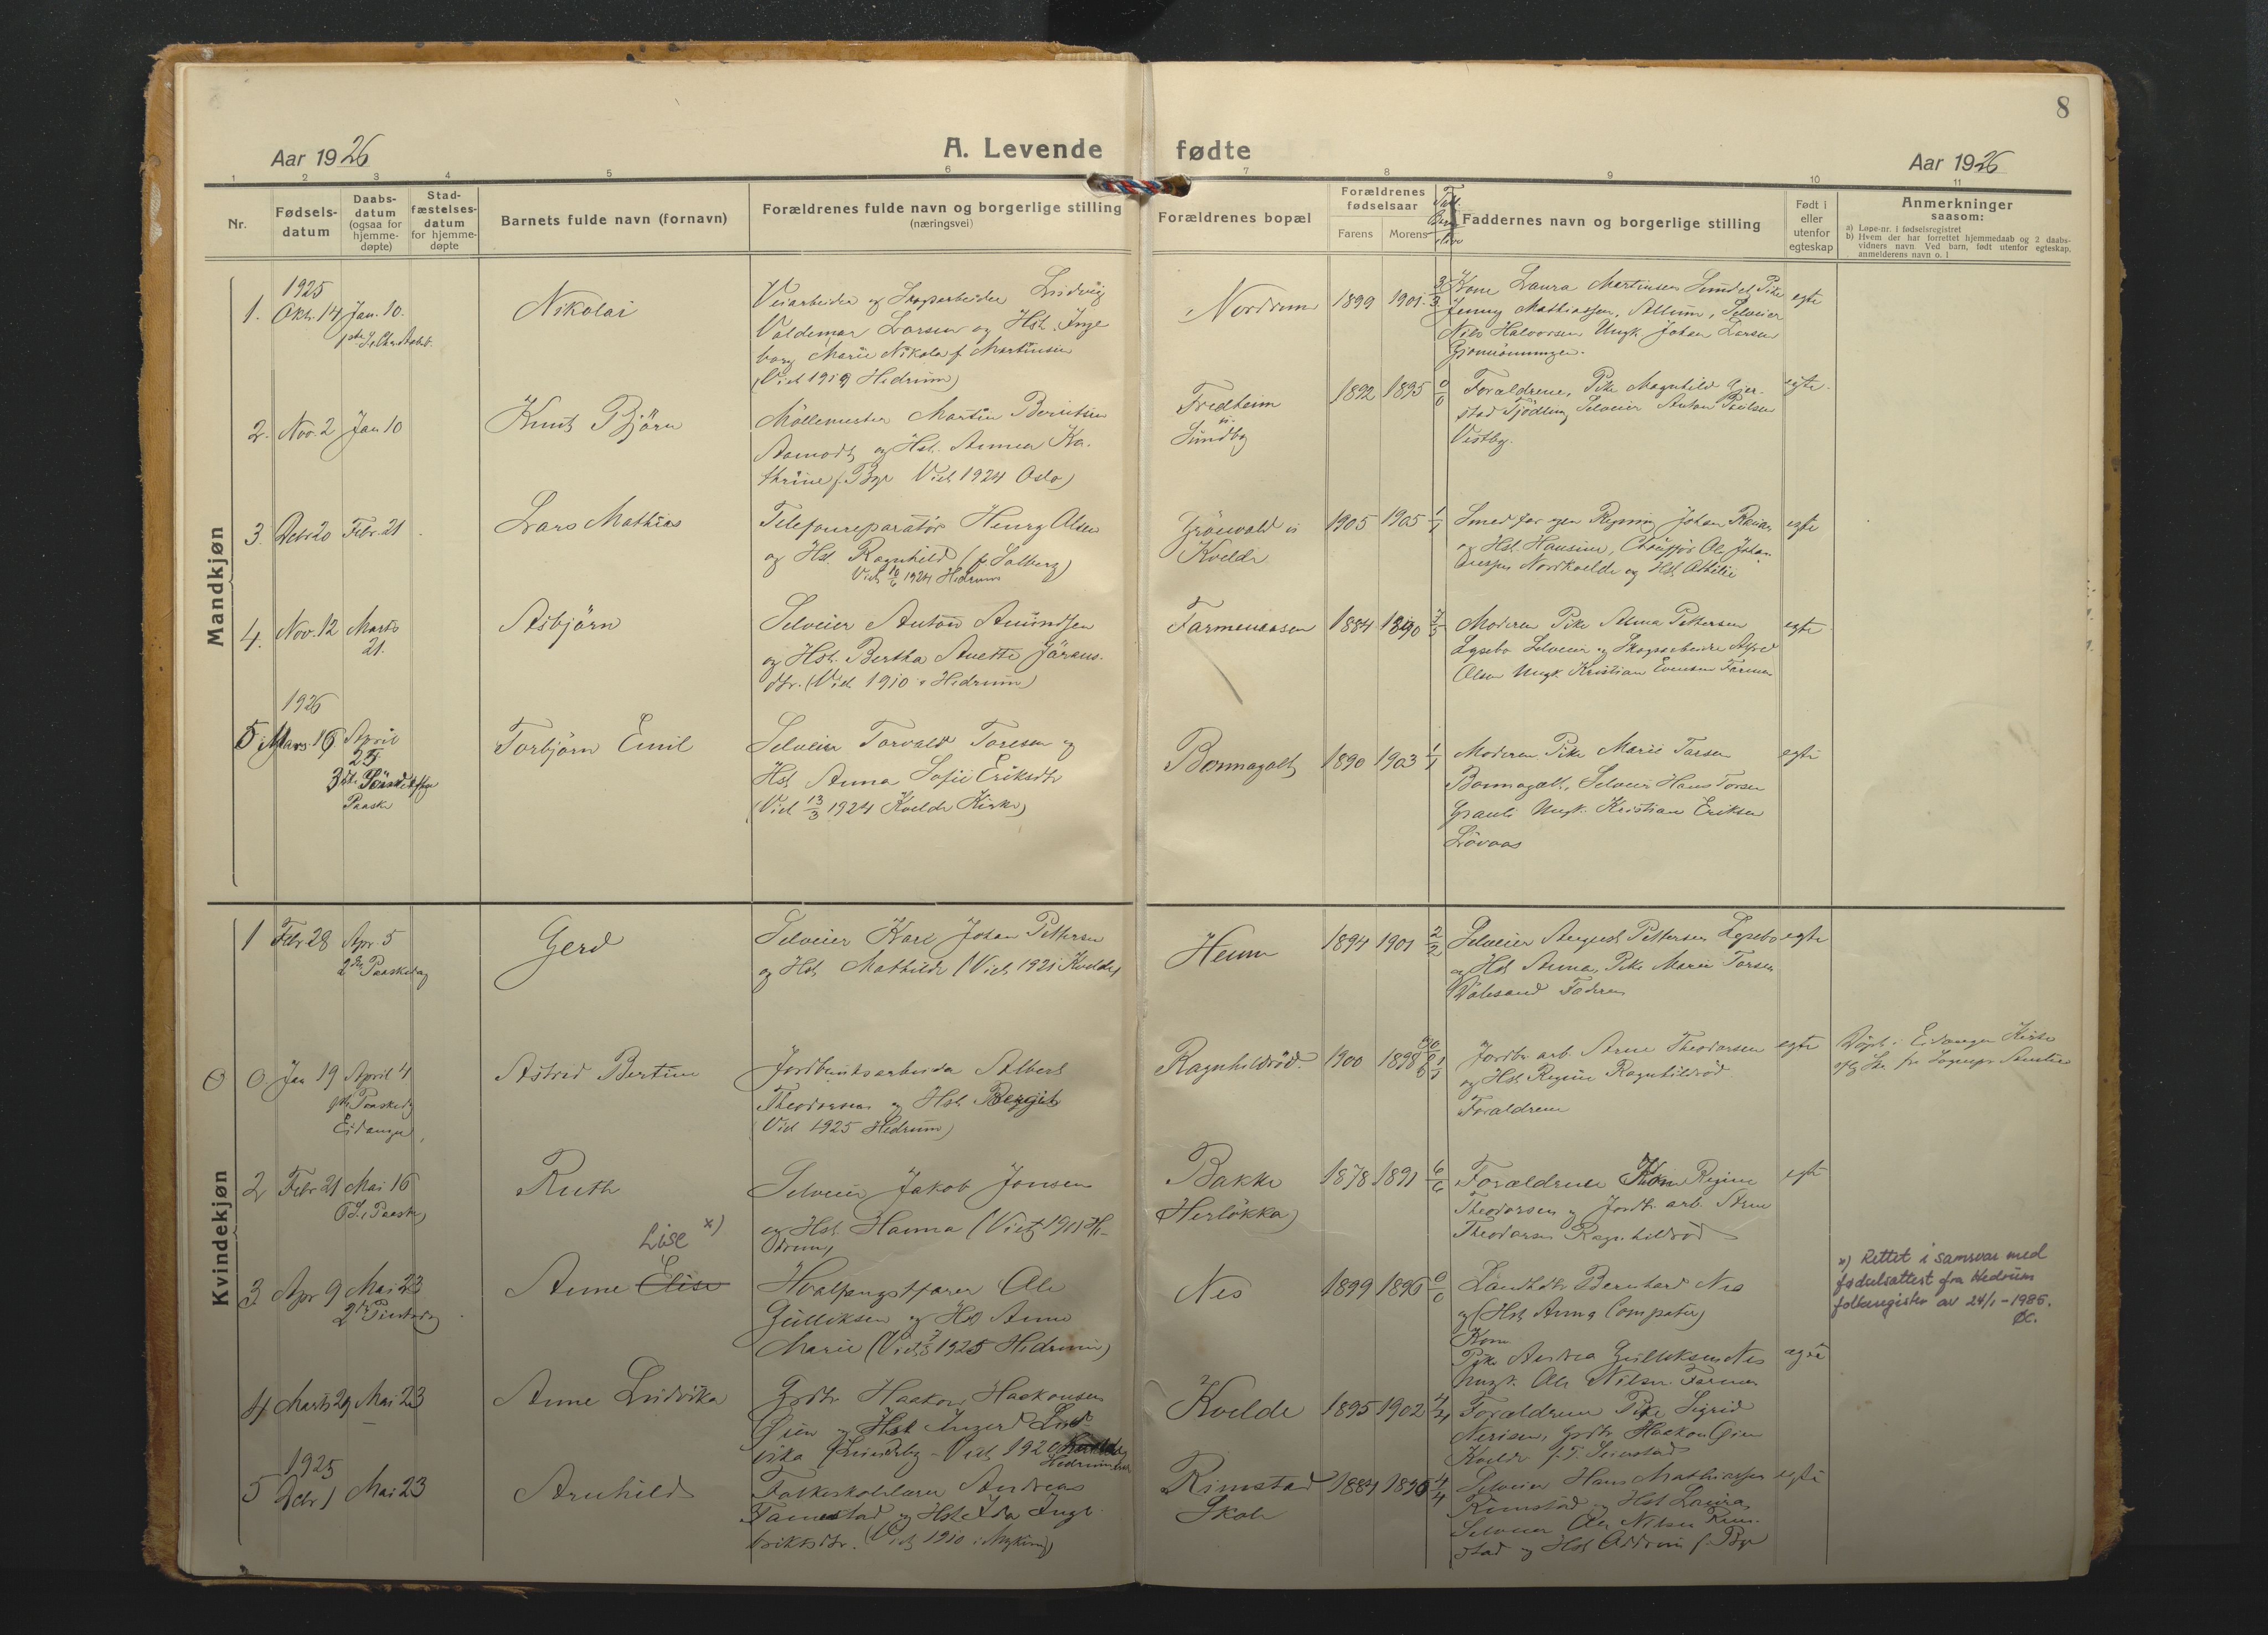 8
Aar 1926
A. Levende fødte
Aar 1926
1 2 3 4 5 6 7 8 9 10 11
Nr.
Fødsels-
datum
Daabs-
datum
(ogsaa for
hjemme-
døpte)
Stad-
fæstelses-
datum
for hjemme-
døpte
Barnets fulde navn (fornavn)
Forældrenes fulde navn og borgerlige stilling
(næringsvei)
Forældrenes bopæl
Forældrenes
fødselsaar
Farens Morens
Faddernes navn og borgerlige stilling
Født i
eller
utenfor
egteskap
Anmerkninger
saasom:
a) Løpe-nr. i fødselsregistret
b) Hvem der har forrettet hjemmedaab og 2 daabs-
vidners navn. Ved barn, født utenfor egteskap,
anmelderens navn o. l
Mandkjøn
1925
1. Okt. 14 Jan. 10.
Nikolai
Veiarbeider og Skogsarbeider Ludvig
Valdemar Larsen og Hst. Inge
borg Marie Nikola f. Martinsen
(Viet 1919 Hedrum)
Nordrum 1899 1901. 3/3
Kone Laura Martinsen Pike
Jenny Mathiassen, Selveier
Nils Halvorsen Ungk Johan Larsen
egte
2. Nov. 2 Jan 10
Knut Bjørn
Møllemester Martin Berntsen
Aamodt og Hst. Anna Ka-
thrine f. Bye Viet 1924 Oslo)
Fredheim
Sundby
1892 1895 0/0
Forældrene, Pike Magnhild Gjer-
stad Selveier Anton Paulsen
Vestby.
egte
3. Debr 20 Febr. 21
Lars Mathias
Telefonreparatør Henry Olsen
og Hst. Ragnhild (f. Solberg)
Viet 10/6 1924 Hedrum
Kvelde
1905 1905 1/1
Smed Johan
og Hst. Hansine, Chauffør Ole Johan-
nessen Nordkvelde og Hst. Othilie
egte
4. Nov. 12 Marts
21.
Asbjørn
Selveier Anton Amundsen
og Hst. Bertha Anette Jørans-
dtr. (Viet 1910 i Hedrum)
Farmenaasen 1884 1890 7/5
Moderen Pike Selma Pettersen
Lysebo Selveier og Skogsarbeider Alfred
Olsen Ungk. Kristian Evensen Farmen
egte
1926
5 Mars. 16 April
25
3die Sønd. efter
Paaske
Torbjørn Emil
Selveier Torvald Toresen og
Hst Anna Sofie Eriksdtr
(Viet 13/3 1924 Kvelde Kirke)
Bommagalt 1890 1903 1/1
Moderen Pike Marie Torsen
Bommagalt, Selveier Hans Torsen
Ungk. Kristian Eriksen
Løvaas
egte
Kvindekjøn
1 Febr 28 Apr. 5
2den Paaskedag
Gerd
Selveier Karl Johan Pettersen
og Hst Mathilde (Viet 1921 Kvelde)
Heum 1894 1901 2/2
Selveier August Pettersen Lysebo
og Hst Anna, Pike Marie Torsen
Faderen
egte
0 Jan 19 April 4
1ste Paaskedag
Eidanger
Astrid Bertine
Jordbruksarbeider Albert
Theodorsen og Hst Bergit
(Viet 1925 Hedrum)
Ragnhildrød. 1900 1898
Jordbr. arb. Arne Theodorsen
og Hst Regine Ragnhildrød
Forældrene
egte
Døpt i Eidanger Kirke
2 Febr 21 Mai 16
6 S. e. Paaske
Ruth
Selveier Jakob Jonsen
og Hst. Hanna (Viet 1911 He-
drum)
Bakke
(Herløkka)
1878 1891 6/6
Forældrene Kone Regine
Theodorsen og Jordbr. arb. Arne
Theodorsen Ragnhildrød
egte
3. Apr 9 Mai 23
2den Pinsedag
Lise x)
Anne Elise
Hvalfangstfarer Ole
Gulliksen og Hst Anne
Marie (Viet 1925 Hedrum)
Nes 1899 1896 0/0
Bernhard Nes
og (Hst Anna Compater)
Kone
Pike Andrea Gulliksen Nes
Ungk. Ole Nilsen Farmen
egte
x) Rettet i samsvar med
fødselsattest fra Hedrum
folkeregister av 24/1 - 1985.
4 Marts 29 Mai 23
Anne Ludvika
Grdbr. Haakon Haakonsen
Øien og Hst Inger Lud-
vika f. Lindseby - Viet 1920
Hedrum
Kvelde 1895 1902 4/4
Forældrene Pike Sigrid
Grdbr Haakon Øien
Kvelde
1925
5 Debr 1 Mai 23
Arnhild
Folkeskolelærer Andreas
og Hst Ida Inge-
briktsdr. (Viet 1910 i
Rimstad
Skole
1884 1890 4/4
Selveier Hans Mathiassen
Rimstad og Hst Laura,
Selveier Ole Nilsen Rim-
stad og Hst f. Bye
egte